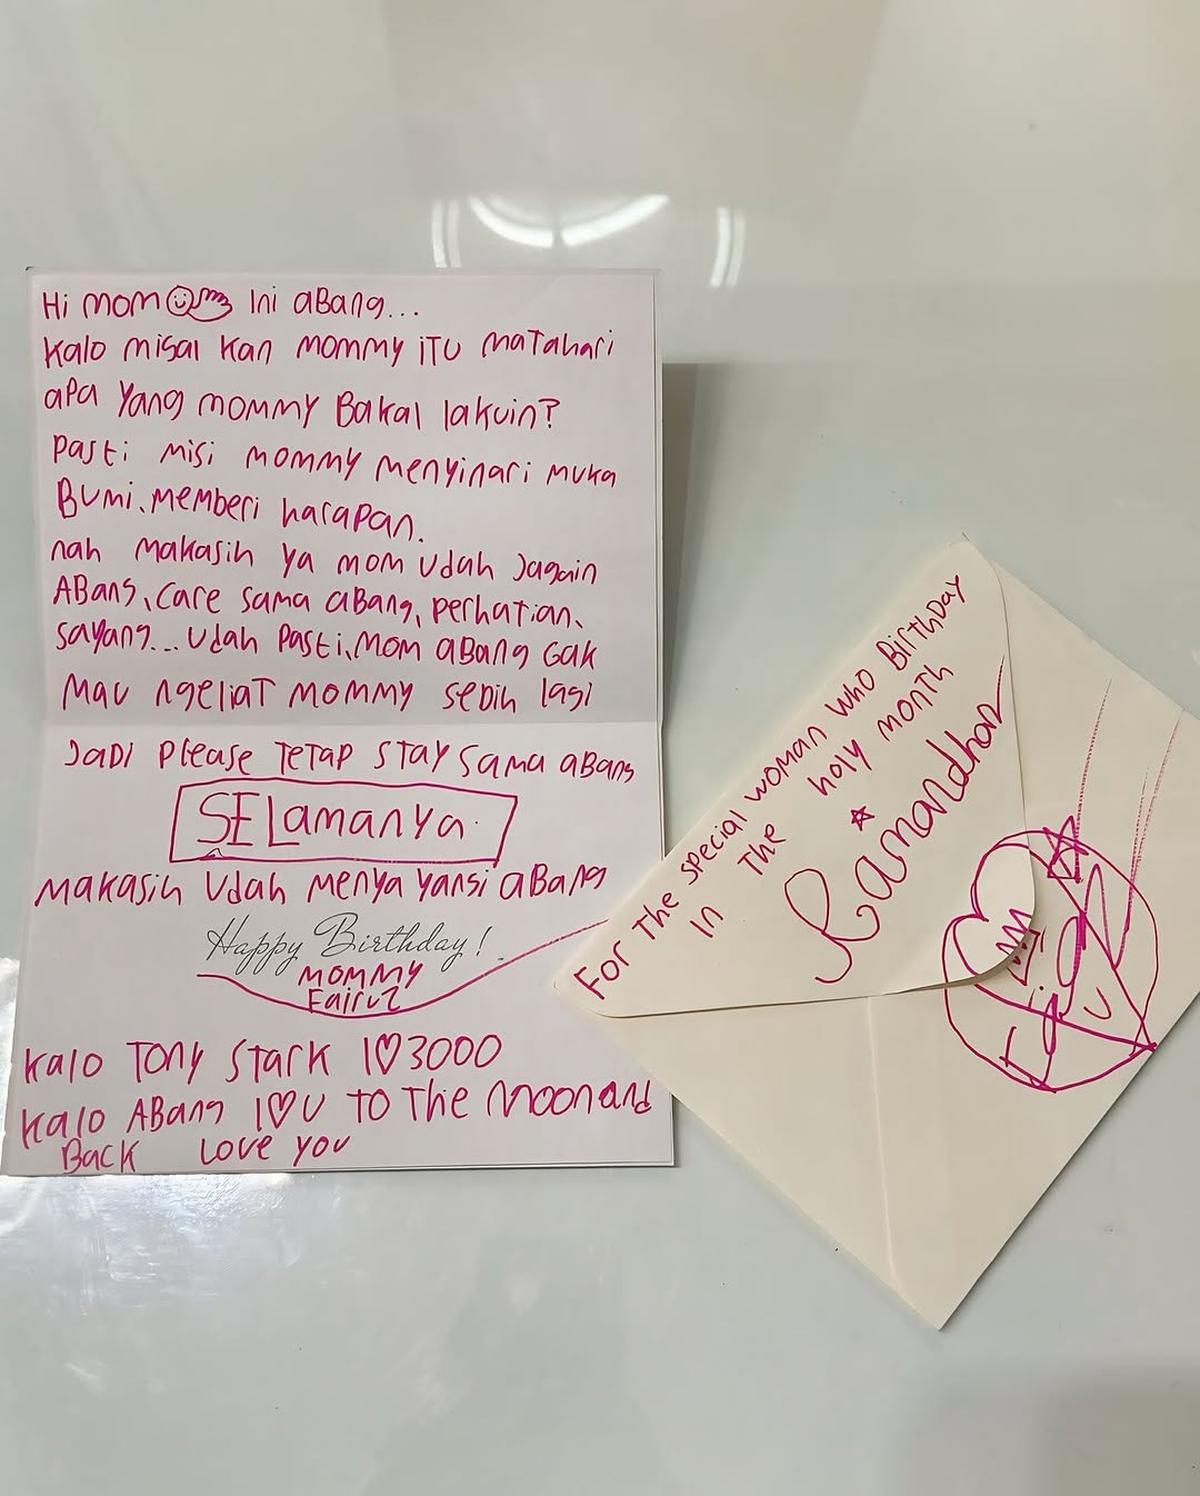 Hi mom ini aBang...
kalo misal kan mommy iTU maTahari
apa yang mommy Bakal lakuin?
pasti misi mommy menyinari muka
Bumi, memberi harapan.
nah makasih ya mom udah Jagain
ABang, care sama aBang, perhatian,
sayang... udah pasti, mom aBang Gak
mau ngeliaT mommy sedih lagi
JaDi please TeTap STay Sama aBang
SELamanya.
makasih udah menyayangi aBang
Happy Birthday!
mommy
Fairuz
kalo Tony Stark I♡3000
kalo ABang I♡U To The moon and
Back Love you
For The special woman who Birthday
In The holy month
Ramandhan